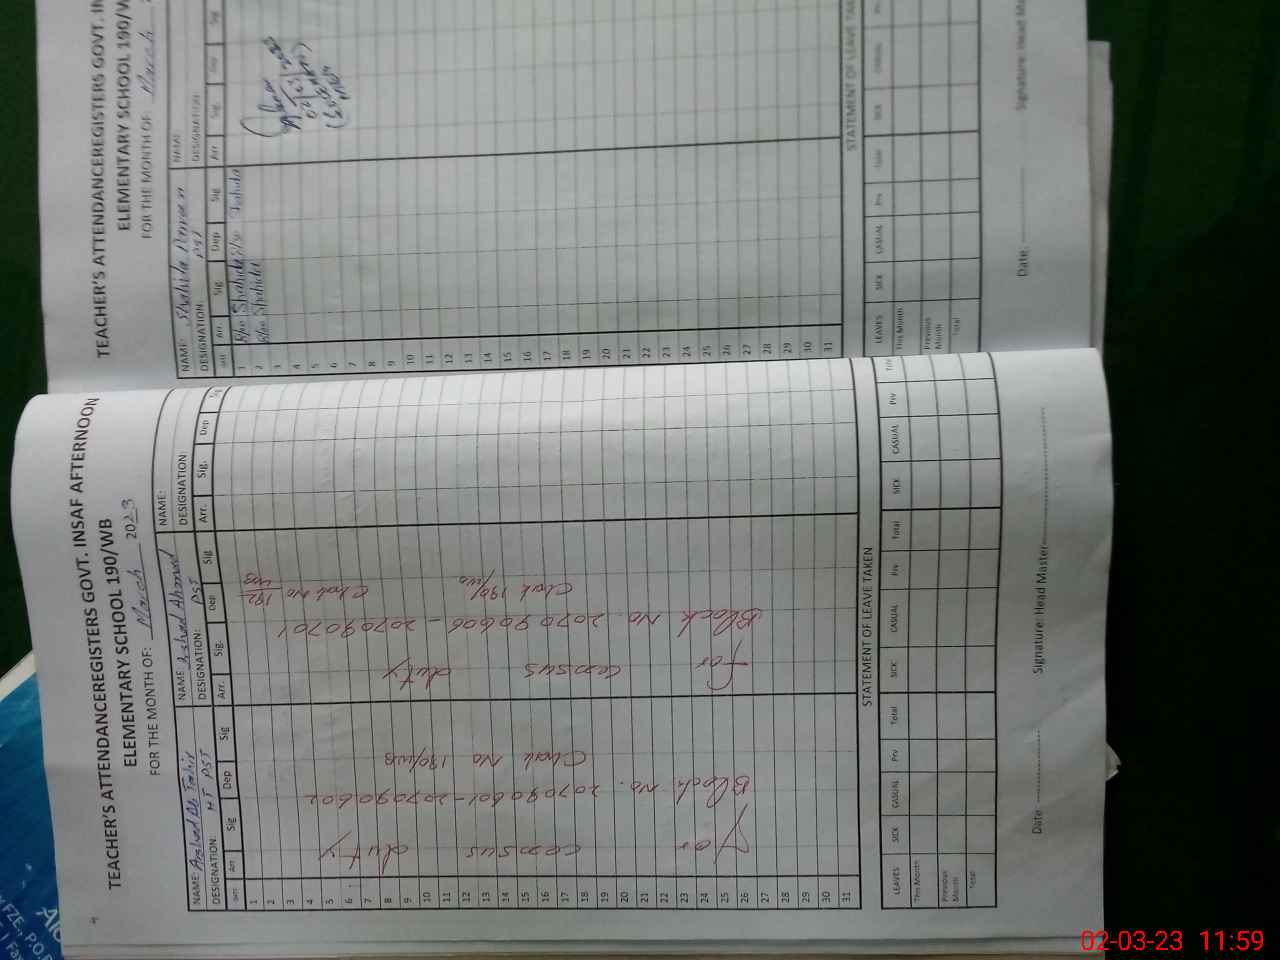 TEACHER'S ATTENDANCEREGISTERS GOVT. INSAF AFTERNOON
ELEMENTARY SCHOOL 190/WB
FOR THE MONTH OF: March 2023
NAME: Arshad Ali Tahir
DESIGNATION: HT PST
NAME: Arshad Ahmed
DESIGNATION: PST
NAME:
DESIGNATION:
Arr Sig Dep Sig Arr. Sig. Dep Sig Arr. Sig. Dep Sig
1
2
3
4
5
6
7
8
9
10
11
12
13
14
15
16
17
18
19
20
21
22
23
24
25
26
27
28
29
30
31
For census duty
Block No. 207090601-207090602
Chak No 190/WB
For census duty
Block No. 207090606 - 207090701
Chak 190/WB Chak No 192/WB
STATEMENT OF LEAVE TAKEN
LEAVES SICK CASUAL Prv Total SICK CASUAL Prv Total SICK CASUAL Prv
This Month
Previous Month
Total
Date: Signature: Head Master
TEACHER'S ATTENDANCEREGISTERS GOVT. IN
ELEMENTARY SCHOOL 190/W
FOR THE MONTH OF: March
NAME: Shahida Parveen
DESIGNATION: PST
NAME:
DESIGNATION:
Arr. Sig Dep Sig Arr Sig. Dep Sig
1 Shahida Shahida
2 Shahida
3
4
5
6
7
8
9
10
11
12
13
14
15
16
17
18
19
20
21
22
23
24
25
26
27
28
29
30
31
STATEMENT OF LEAVE TAKE
LEAVES SICK CASUAL Prv Total SICK CASUAL
This Month
Previous Month
Total
Date: Signature: Head Ma
FZE., P.O.
02-03-23 11:59